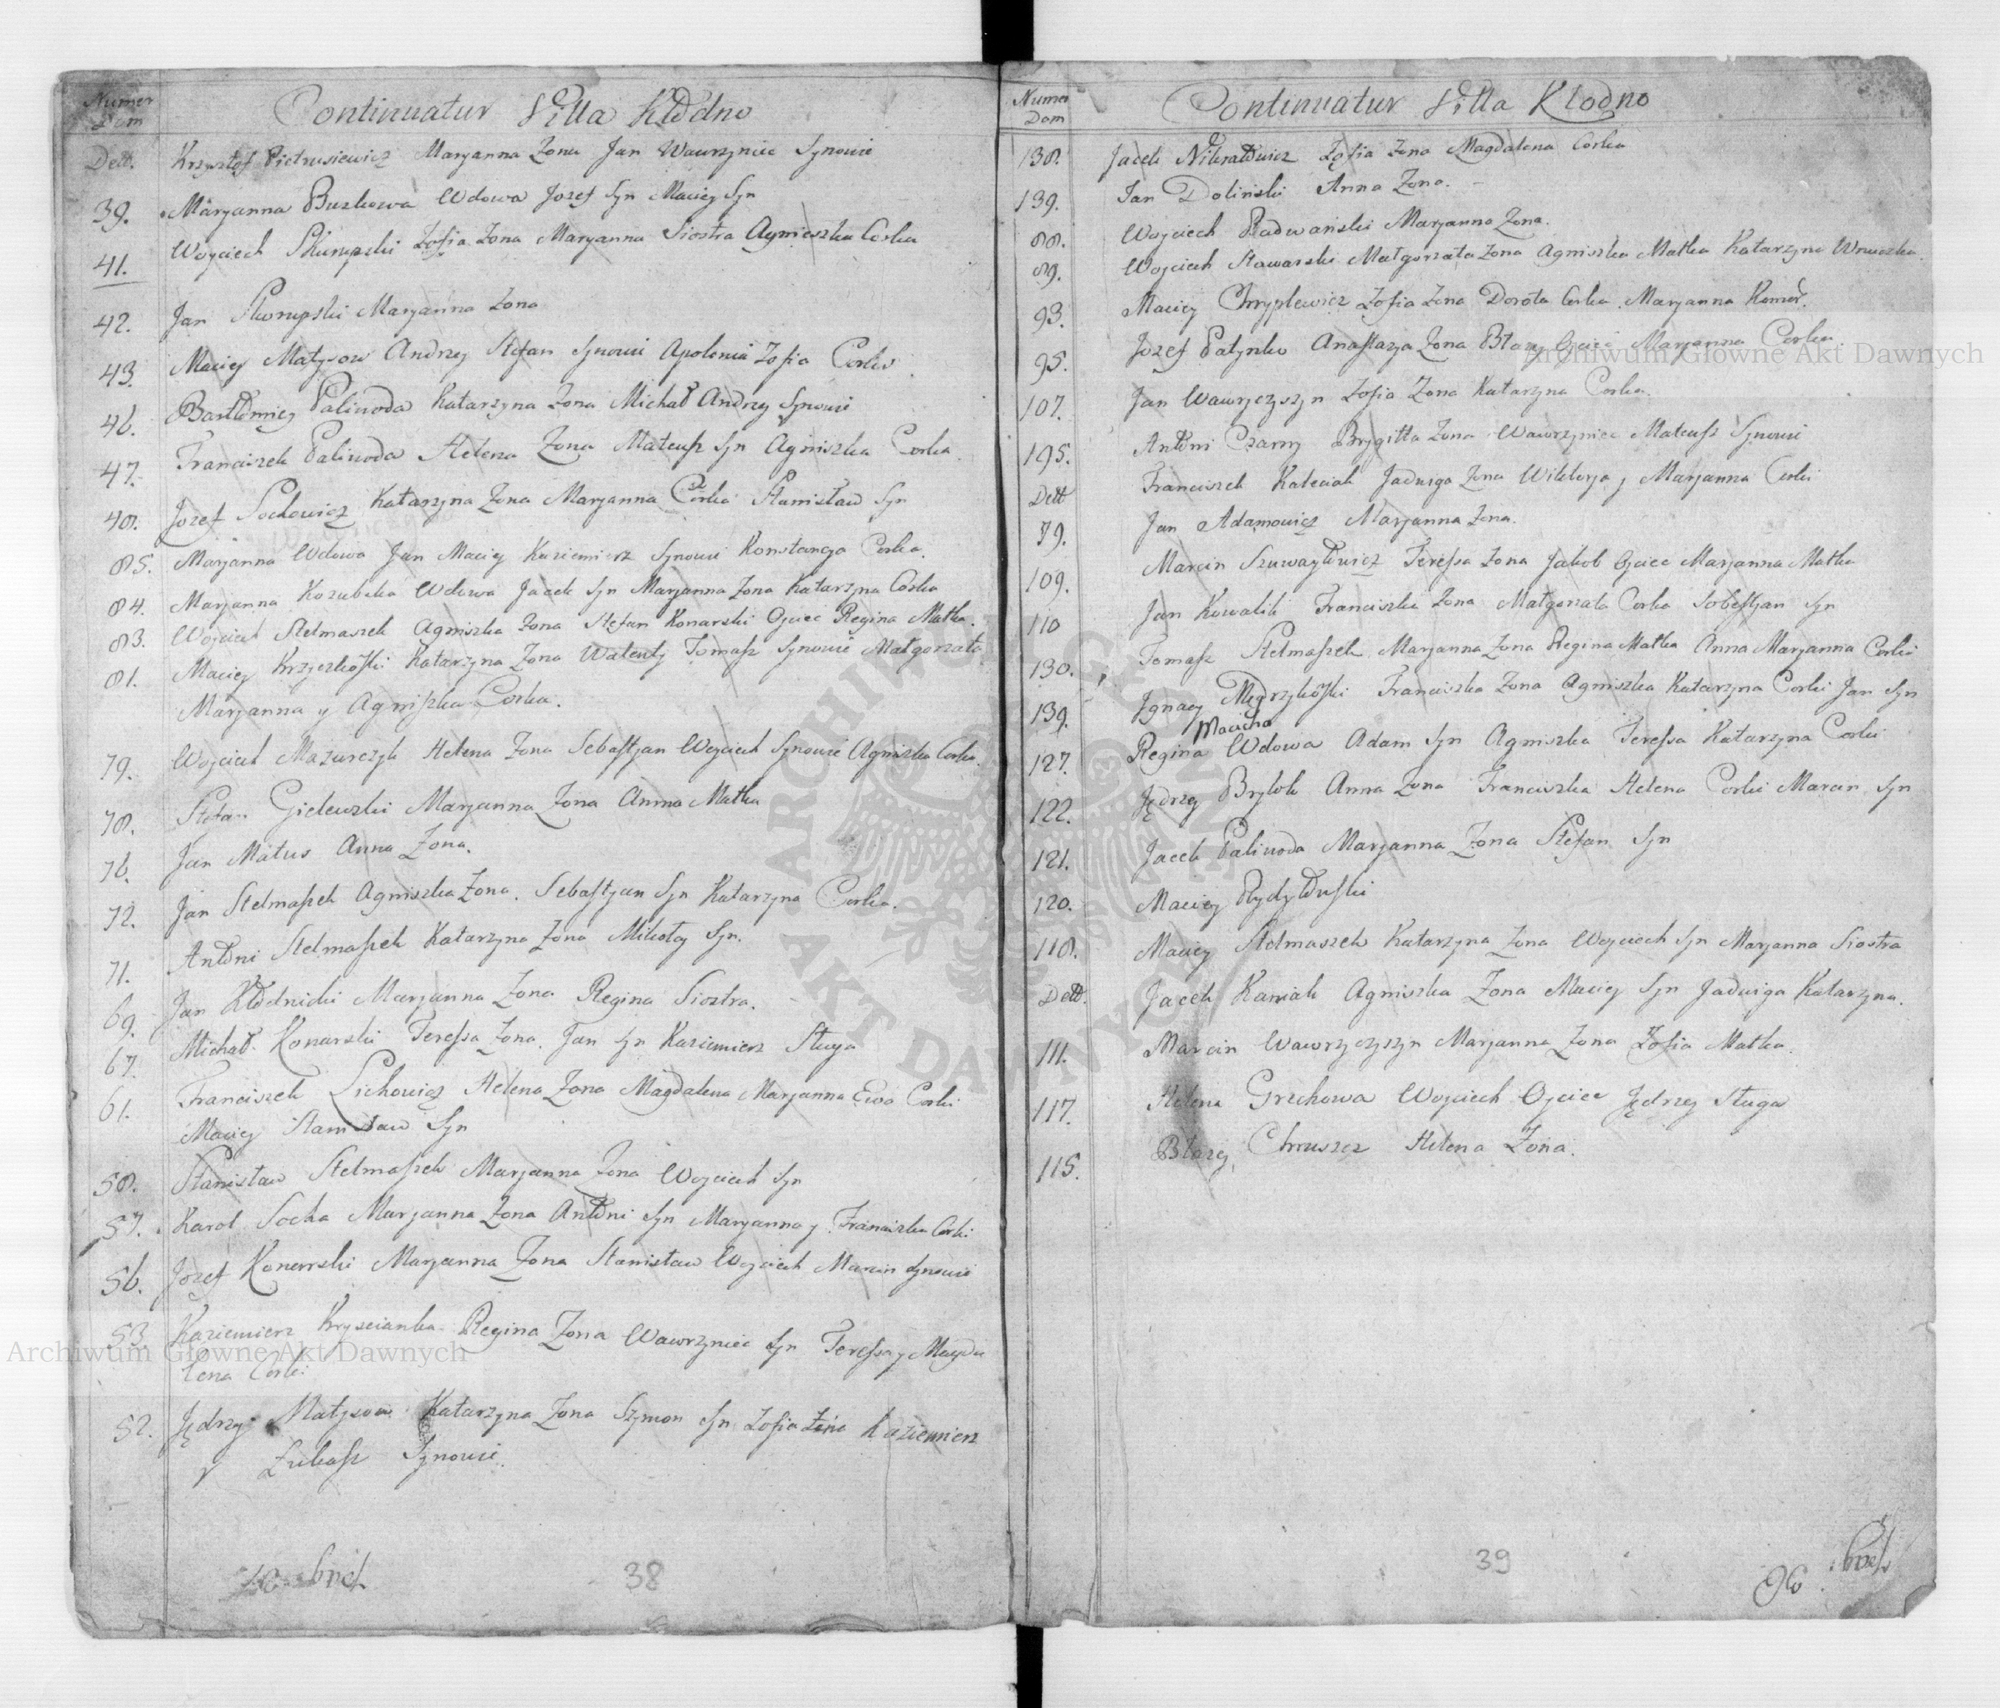 Numer Dom
Continuatur Villa Kłodno
Dett. Krzysztof Pietrusiewicz Maryanna Zona Jan Wawrzyniec Synowie
39. Maryanna Buzkowa Wdowa Jozef Syn Maciey Syn
41. Woyciech Skurupski Zofia Zona Maryanna Siostra Agnieszka Corka
42. Jan Skurupski Maryanna Zona
43. Maciey Matysow Andrzey Stefan Synowi Apolonia Zofia Corki
46. Bartłomiey Paliwoda Katarzyna Zona Michał Andrzey Synowie
47. Franciszek Paliwoda Helena Zona Mateusz Syn Agniszka Corka
48. Jozef Sochowicz Katarzyna Zona Maryanna Corka Stanisław Syn
85. Maryanna Wdowa Jan Maciey Kaziemierz Synowi Konstancya Corka.
84. Maryanna Kozubska Wdowa Jacek Syn Maryanna Zona Katarzyna Corka
83. Woyciech Stelmaszek Agniszka Zona Stefan Konarski Oyciec Regina Matka.
81. Maciey Krzyszkoski Katarzyna Zona Walenty Tomasz Synowie Małgorzata
Maryanna y Agniszka Corka.
79. Woyciech Mazurczyk Helena Zona Sebastyan Woyciech Synowie Agniszka Corka.
78. Stefan Gielewski Maryanna Zona Anna Matka
76. Jan Matus Anna Zona.
72. Jan Stelmaszek Agniszka Zona. Sebastyan Syn Katarzyna Corka.
71. Antoni Stelmaszek Katarzyna Zona Mikołay Syn.
69. Jan Kłodnicki Maryanna Zona Regina Siostra.
67. Michał Konarski Teressa Zona. Jan Syn Kaziemierz Sługa
61. Franciszek Lichowicz Helena Zona Magdalena Maryanna Ewa Corki
Maciey Stanisław Syn
58. Stanisław Stelmaszek Maryanna Zona Woyciech Syn
57. Karol Socha Maryanna Zona Antoni Syn Maryanna y Franciszka Corki
56. Jozef Konarski Maryanna Zona Stanisław Woyciech Marcin Synowie
53. Kaziemierz Kryscianka Regina Zona Wawrzyniec Syn Teressa y Magda
lena Corki
52. Jędrzy Matysow Katarzyna Zona Szymon Syn Zofia Kaziemierz
y Łukasz Synowi.
38
Numer Dom
Continuatur Villa Kłodno
138. Jacek Zofia Zona Magdalena Corka
139. Jan Doliński Anna Zona.
88. Woyciech Radwański Maryanna Zona.
89. Woyciech Stawarski Małgorzata Zona Agniszka Matka Katarzyna Wnuczka.
93. Maciey Chryplewicz Zofia Zona Dorota Corka Maryanna Komor.
95. Jozef Patynko Anastazya Zona Błazy Oyciec Maryanna Corka
107. Jan Wawryczyszyn Zofia Zona Katarzyna Corka.
195. Antoni Czarny Brygitta Zona Wawrzyniec Mateusz Synowi
Dett Franciszek Kaleciak Jadwiga Zona Wiktorya y Maryanna Corki
79. Jan Adamowicz Maryanna Zona.
109. Marcin Szuwayłowicz Teressa Zona Jakob Oyciec Maryanna Matka
110 Jan Kowalik Franciszka Zona Małgorzata Corka Sobestyan Syn
130. Tomasz Stelmaszek Maryanna Zona Regina Matka Anna Maryanna Corki
139. Jgnacy Mędrzykoski Franciszka Zona Agniszka Katarzyna Corki Jan Syn
Macicha
127. Regina Wdowa Adam Syn Agniszka Teressa Katarzyna Corki
122. Jędrzy Brylok Anna Zona Franciszka Helena Corki Marcin Syn
121. Jacek Paliwoda Maryanna Zona Stefan Syn
120. Maciey Rydzyłuski
118. Maciey Stelmaszek Katarzyna Zona Woyciech Syn Maryanna Siostra
Dett. Jacek Kaniak Agniszka Zona Maciey Syn Jadwiga Katarzyna.
111. Marcin Wawrzyczyszyn Maryanna Zona Zofia Matka.
117. Helena Grzchowa Woyciech Oyciec Jędrzey Sługa
115. Błazey Chruszcz Helena Zona.
39
Archiwum Główne Akt Dawnych
Archiwum Główne Akt Dawnych
ARCHIWUM GŁÓWNE AKT DAWNYCH